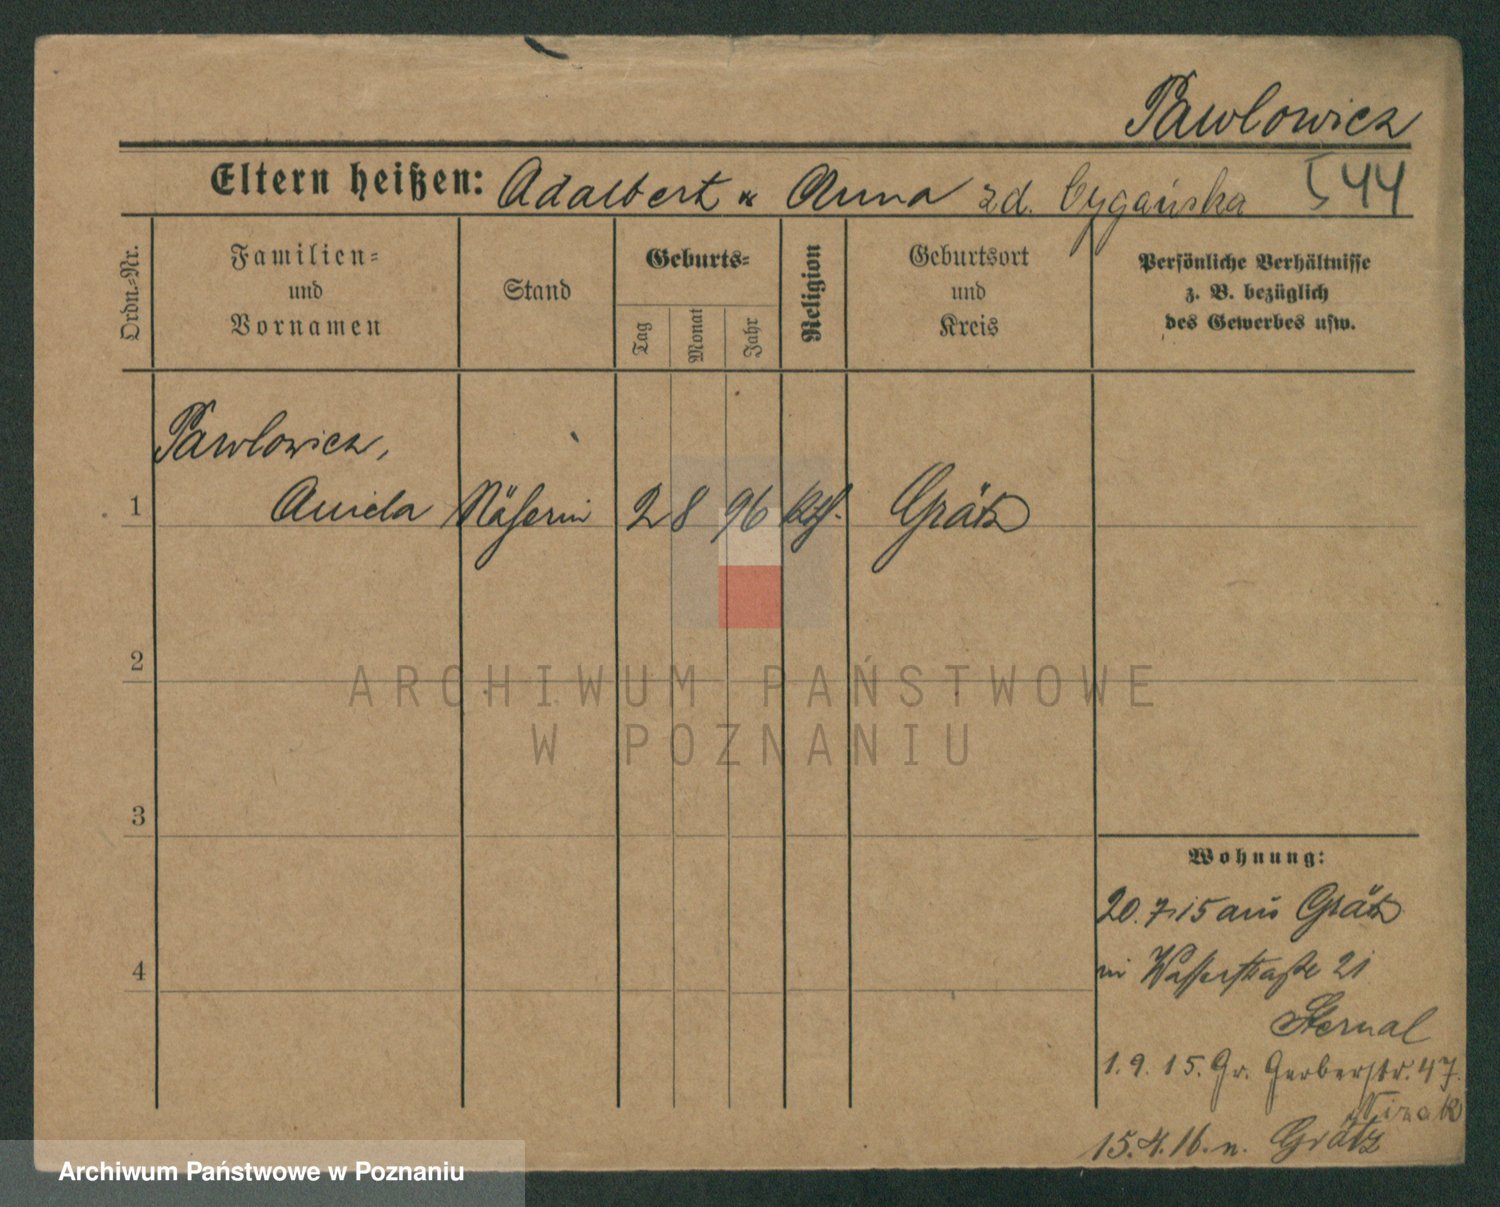 Pawlowicz
Eltern heißen: Adalbert u Anna zd. Cygańska 544
Ordn.-Nr.
Familien-
und
Vornamen
Stand
Geburts-
Tag
Monat
Jahr
Religion
Geburtsort
und
Kreis
Persönliche Verhältnisse
z. B. bezüglich
des Gewerbes usw.
Pawlowicz,
1 Aniela Näherin 2 8 96 kth. Grätz
2
ARCHIWUM PAŃSTWOWE
W POZNANIU
3
Wohnung:
20. 7 15 aus Grätz
4
in Wasserstraße 21
Sternal
1. 9. 15. Gr. Gerberstr. 47.
15. 4. 16. n. Grätz
Archiwum Państwowe w Poznaniu